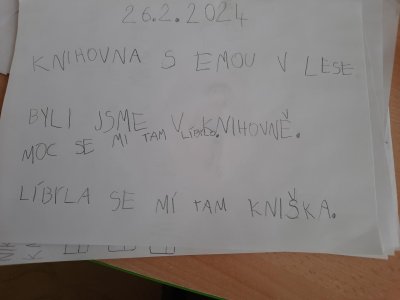 26.2.2024
KNIHOVNA S EMOU V LESE
BYLI JSME V KNIHOVNĚ.
MOC SE MI TAM LÍBILO.
LÍBILA SE MÍ TAM KNIŠKA.